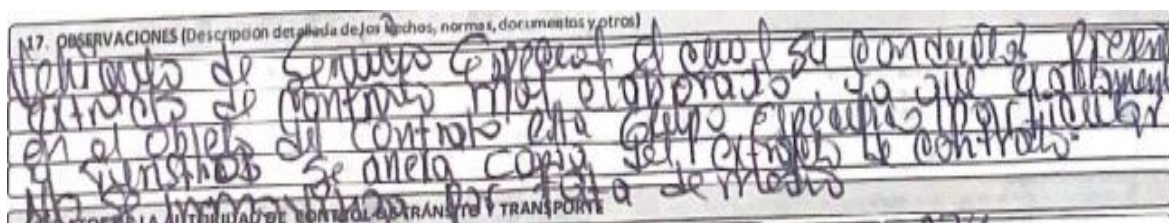 17. OBSERVACIONES (Descripción detallada de los hechos, normas, documentos y otros)
Vehiculo de Servicio Especial el cual su conductor presen
extracto de contrato mal elaborado, ya que
en el objeto del contrato esta Grupo especifico
Se aneta Copia del extracto de contrato
No se inmovilizo por falta de medio
LA AUTORIDAD DE CONTROL DE TRÁNSITO Y TRANSPORTE